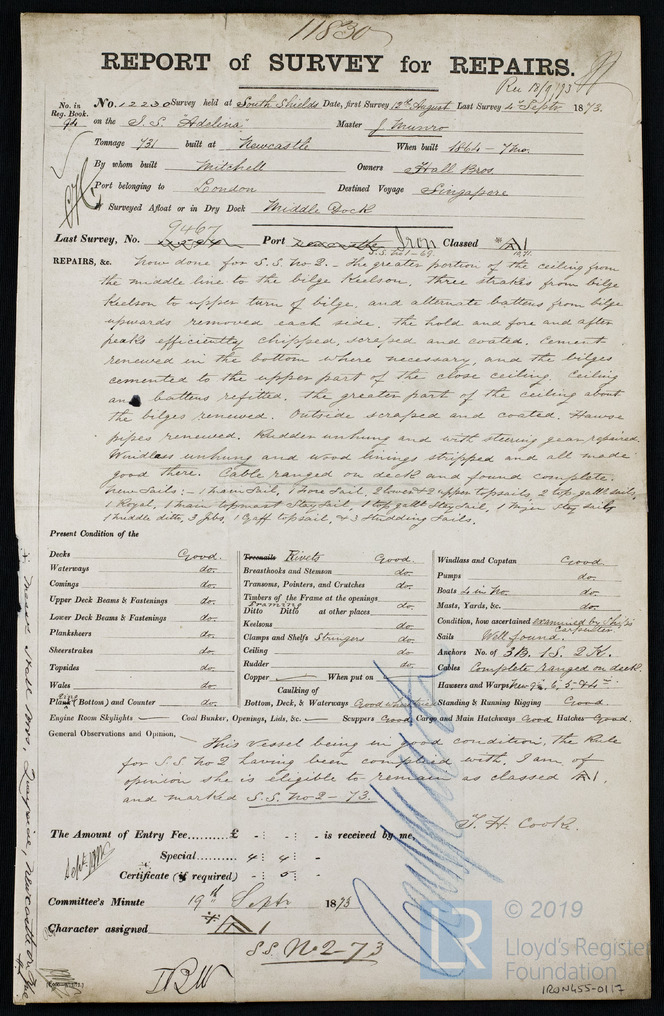 11830
REPORT of SURVEY for REPAIRS.
Rec 18/9/73
No. in Reg. Book. No. 12230 Survey held at South Shields Date, first Survey 12th August Last Survey 4th Septr 1873.
94 on the S.S. "Adelina" Master J Munro
Tonnage 731 built at Newcastle When built 1864 - 7 mo.
By whom built Mitchell Owners Hall Bros
Port belonging to London Destined Voyage Singapore
Surveyed Afloat or in Dry Dock Middle Dock
9467
Last Survey, No. Port Iron Classed A1
S.S. No 1 - 69.
REPAIRS, &c. Now done for S.S. No 2 - The greater portion of the ceiling from
the middle line to the bilge Keelson, three strakes from bilge
Keelson to upper turn of bilge, and alternate battens from bilge
upwards removed each side, the hold and fore and after
peaks efficiently chipped, scraped and coated. Cement
renewed in the bottom where necessary, and the bilges
cemented to the upper part of the close ceiling. Ceiling
and battens refitted. The greater part of the ceiling about
the bilges renewed. Outside scraped and coated. Hawse
pipes renewed. Rudder unhung and with steering gear, repaired.
Windlass unhung and wood linings stripped and all made
good there. Cable ranged on deck and found complete.
New Sails:- 1 main Sail, 1 Fore Sail, 2 lower & 2 upper topsails, 2 top gallt Sails,
1 Royal, 1 main topmast Stay Sail, 1 top gallt Stay Sail, 1 Stay Sail,
1 middle ditto, 3 jibs, 1 Gaff topsail, & 3 Studding Sails.
Present Condition of the
Decks Good.
Waterways do.
Comings do.
Upper Deck Beams & Fastenings do.
Lower Deck Beams & Fastenings do.
Planksheers do.
Sheerstrakes do.
Topsides do.
Wales do.
Plank (Bottom) and Counter do.
Treenails Rivets Good.
Breasthooks and Stemson do.
Transoms, Pointers, and Crutches do.
Timbers of the Frame at the openings do.
Framing
Ditto Ditto at other places do.
Keelsons do.
Clamps and Shelfs Stringers do.
Ceiling do.
Rudder do.
Copper When put on
Caulking of
Bottom, Deck, & Waterways Good
Windlass and Capstan Good.
Pumps do.
Boats 4 in No. do.
Masts, Yards, &c. do.
Condition, how ascertained examined by Ship's Carpenter.
Sails Well found.
Anchors No. of 3 B. 1 S. 2 K.
Cables Complete ranged on deck.
Hawsers and Warps New 9, 6, 5 & 4 in
Standing & Running Rigging Good.
Engine Room Skylights Coal Bunker, Openings, Lids, &c. Scuppers Good, Cargo and Main Hatchways Good Hatches Good.
General Observations and Opinion, This vessel being in good condition, the Rule
for S.S. No 2 having been complied with, I am of
opinion she is eligible to remain as classed A1,
and marked S.S. No 2 - 73.
T. H. Cooke.
The Amount of Entry Fee..........£ - : - : - is received by me,
Special.......... 4 : 4 : -
Certificate (if required) - : 5 : -
Committee's Minute 19th Septr 1873
Character assigned A1
S.S. No 2-73
LR
© 2019
Lloyd's Register
Foundation
IRON455-0117